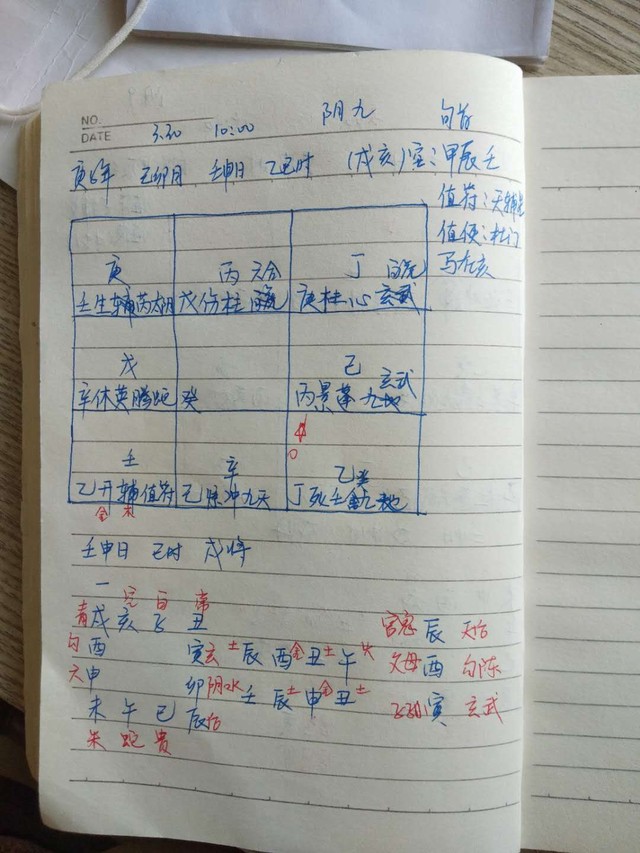 NO.
DATE 3.30 10:00 阴九 旬首
庚子年 己卯月 壬申日 乙巳时 (戌亥)空:甲辰壬
值符:天辅
值使:杜门
马在亥
庚 丙 六合 丁
壬生辅芮太阴 戊伤柱 庚杜心 玄武
戊 己 玄武
辛休英腾蛇 癸 丙景蓬九地
壬 辛 乙癸
乙开辅值符 己惊冲九天 丁死壬
金 木
壬申日 巳时 戌将
一 元 白 常
青戌 亥 丑
勾酉 寅玄 土辰 酉金 丑土 午火 官鬼 辰 天后
六申 卯阴 水壬 辰土 申金 丑土 父母 酉 勾陈
未 午 巳 辰后 寅 玄武
朱 蛇 贵